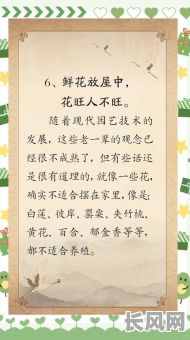 6、鲜花放屋中，
花旺人不旺。
随着现代园艺技术的
发展，这些老一辈的观念已
经很不成熟了，但有些话还
是很有道理的，就像一些花，
确实不适合摆在家里，像是：
白莲、彼岸、罂粟、夹竹桃、
黄花、百合、郁金香等等，
都不适合养殖。
长风网